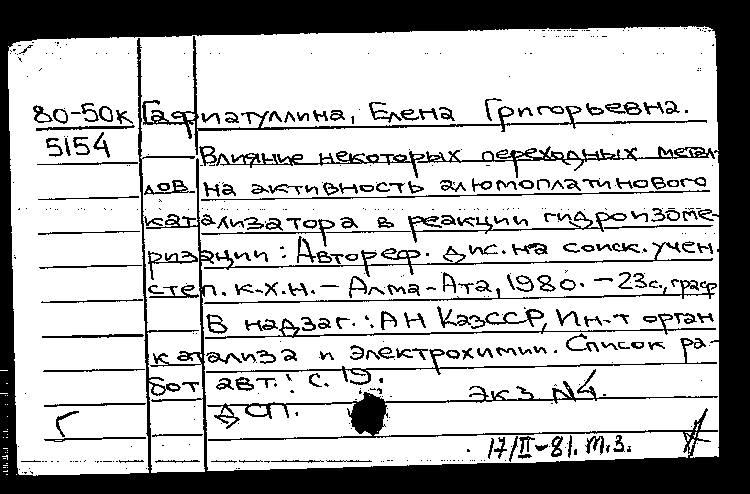 80-50к Гафиатуллина, Елена Григорьевна.
5154
Влияние некоторых переходных метал-
лов на активность алюмоплатинового
катализатора в реакции гидроизоме-
ризации: Автореф. дис. на соиск. учен.
степ. к.х.н. — Алма-Ата, 1980. — 23с, граф
В надзаг.: АН КазССР, Ин-т орган
катализа и электрохимии. Список ра-
бот авт.: с. 19.
экз N4.
ДСП.
17/II-81. т.з.